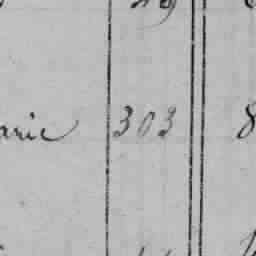 arie 303 8